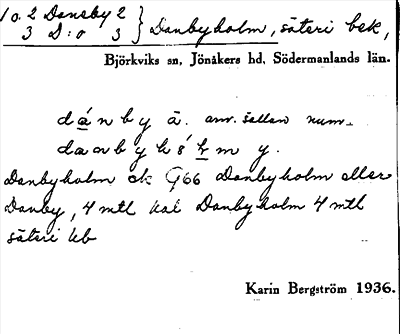 1 o. 2 Danby 2 } Danbyholm, säteri bek,
3 D:o 3
Björkviks sn, Jönåkers hd, Södermanlands län.
dánby ā. anv. sällan num.
danbyhólm y.
Danbyholm ek G66 Danbyholm eller
Danby, 4 mtl kal Danbyholm 4 mtl
säteri Ub
Karin Bergström 1936.